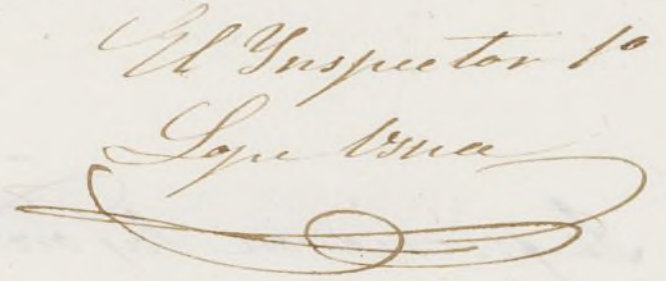 El Inspector 1º
Lope